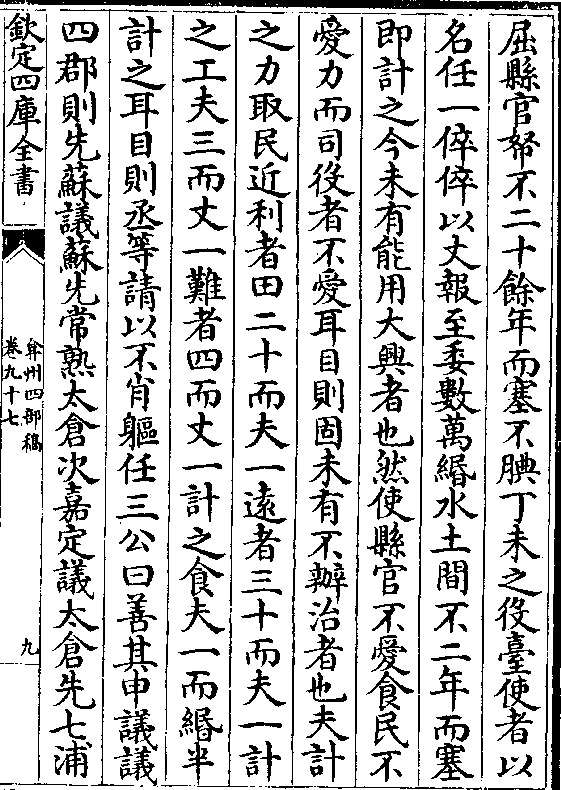 屈縣官帑不二十餘年而塞不腆丁未之役臺使者以
名任一倅倅以丈報至委數萬緡水土間不二年而塞
即計之今未有能用大興者也然使縣官不愛食民不
愛力而司役者不愛耳目則固未有不辦治者也夫計
之力取民近利者田二十而夫一遠者三十而夫一計
之工夫三而丈一難者四而丈一計之食夫一而緡半
計之耳目則丞等請以不肖軀任三公曰善其申議議
四郡則先蘇議蘇先常熟太倉次嘉定議太倉先七浦
欽定四庫全書
弇州四部稿
卷九十七
九